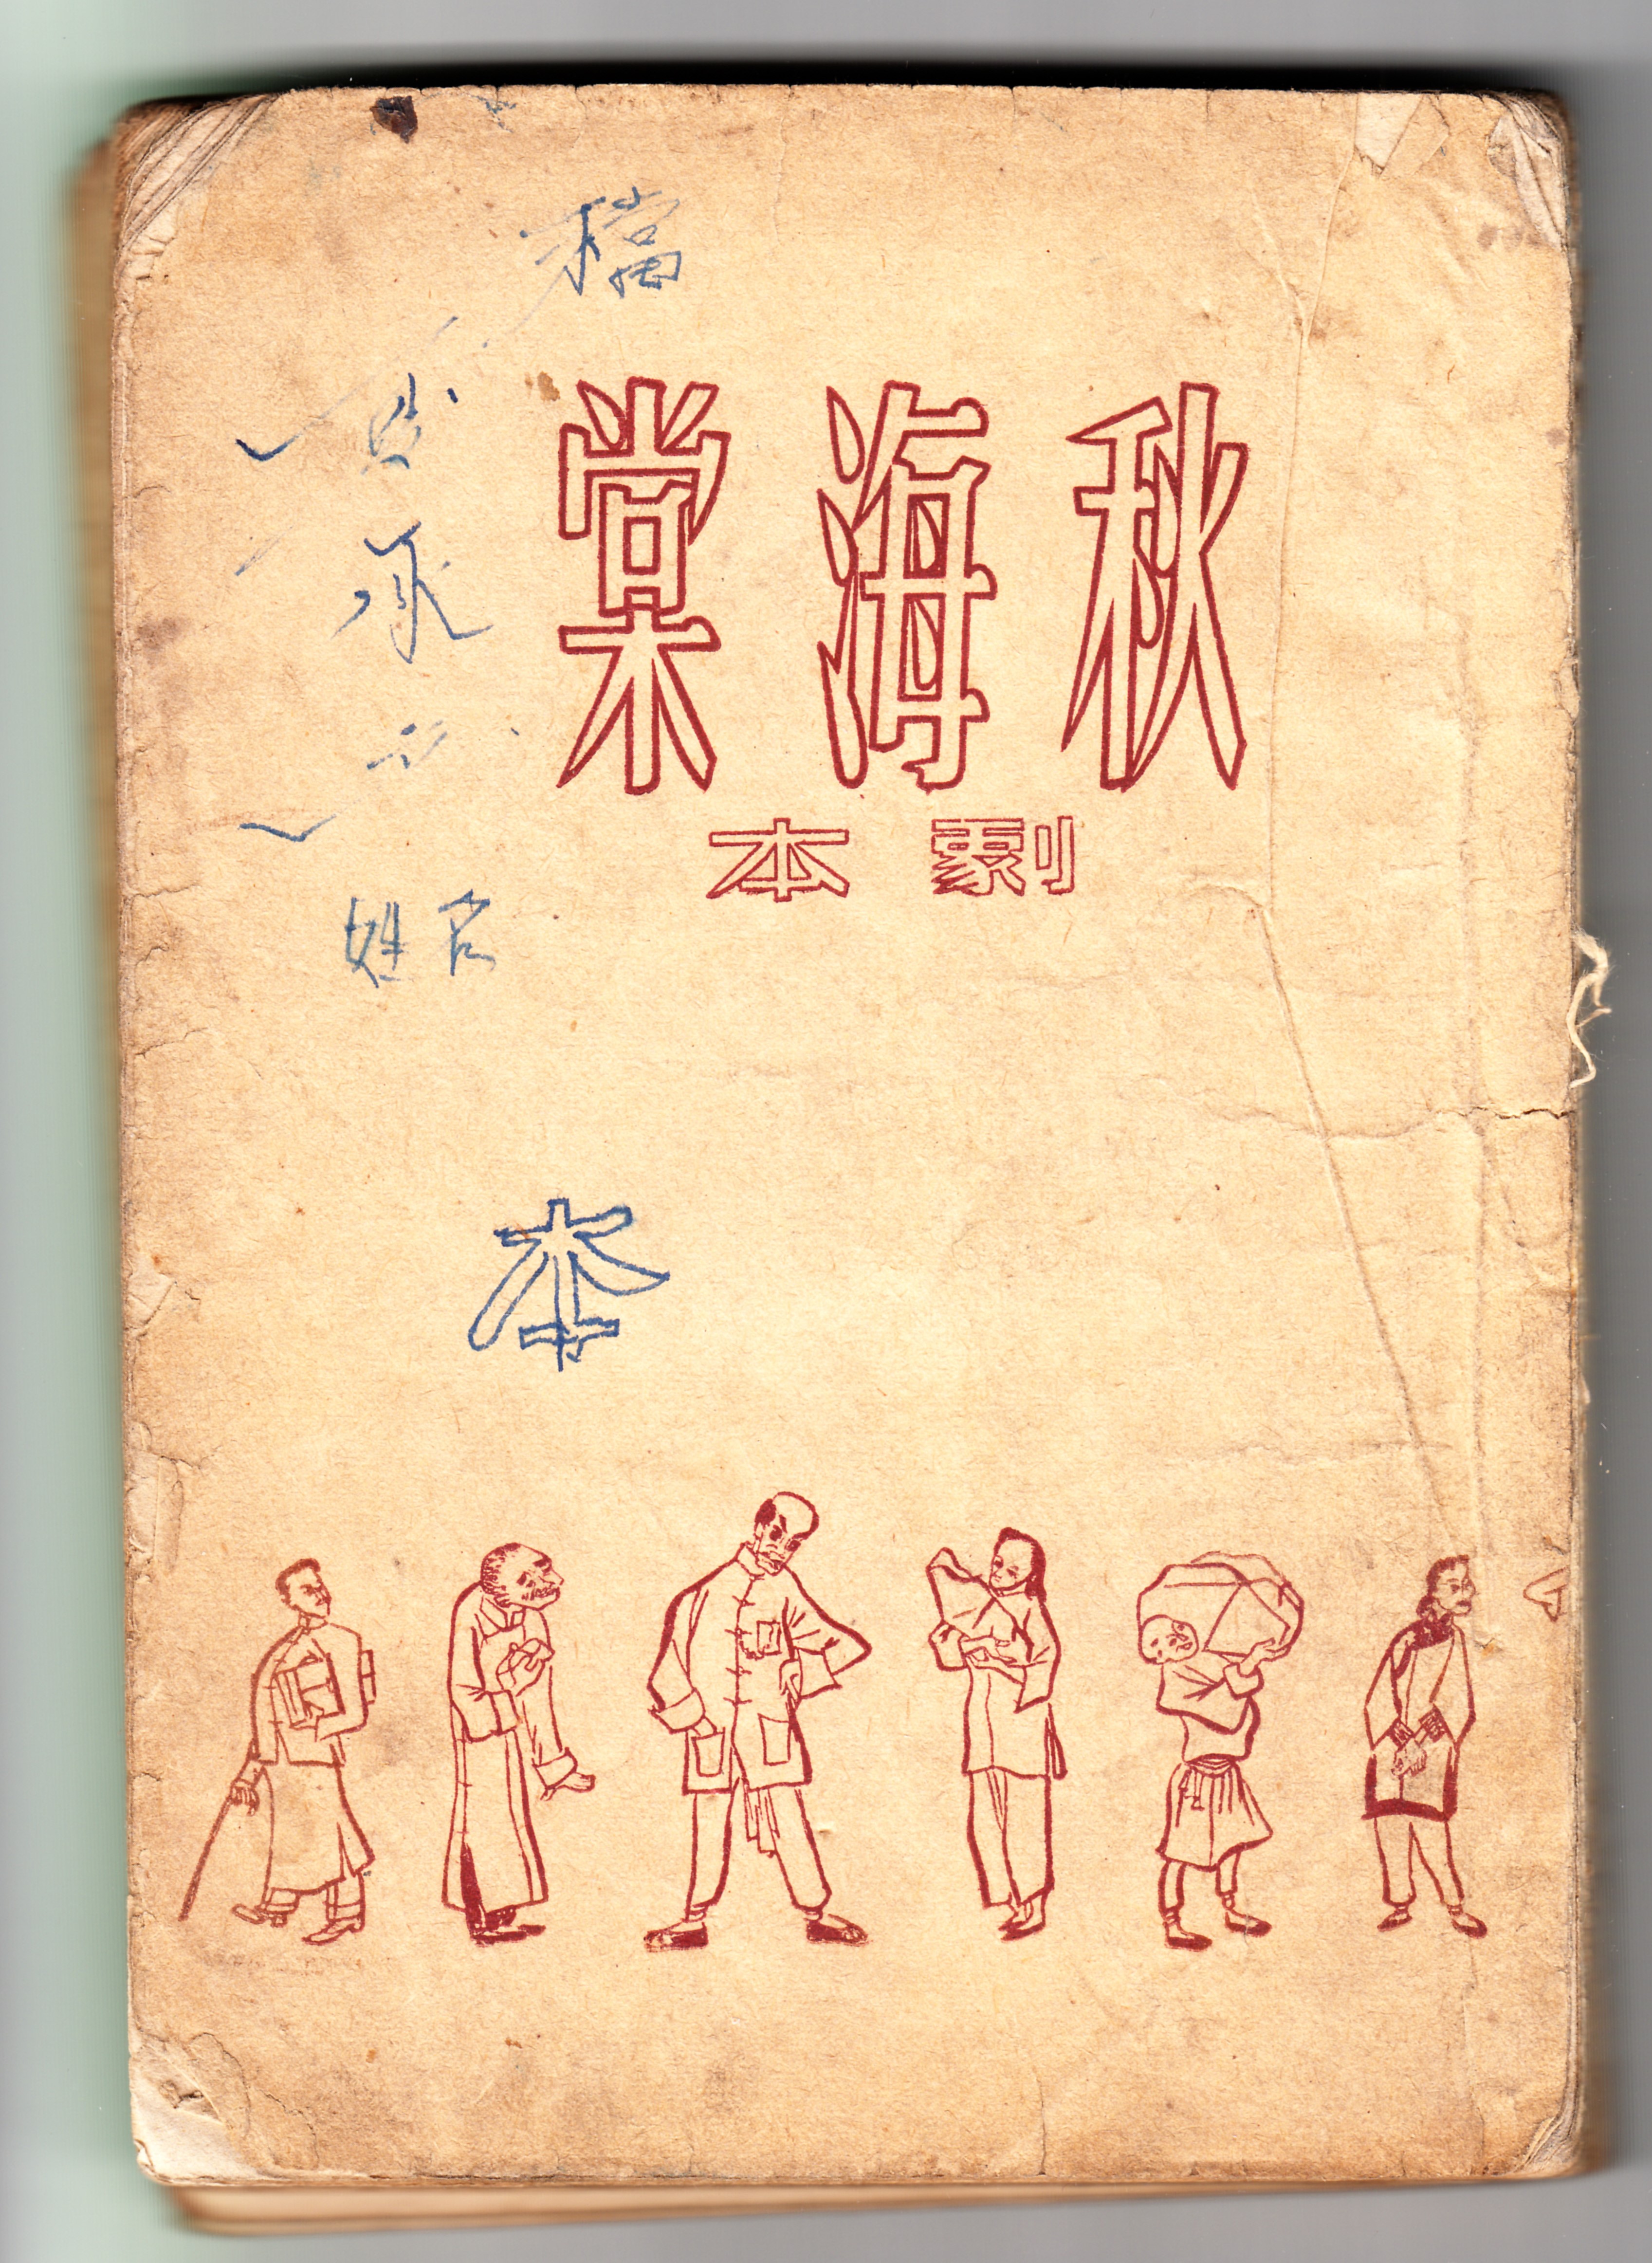 秋海棠
劇本
姓名
本